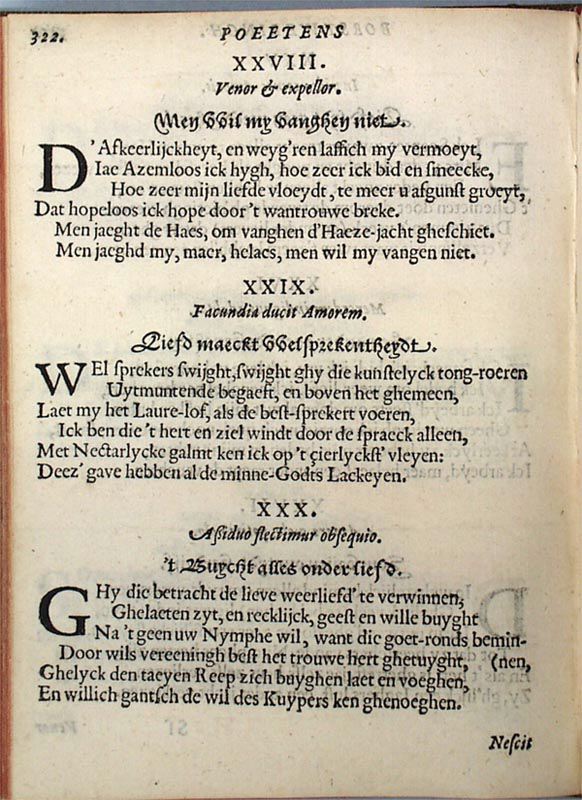 322.
POEETENS
XXVIII.
Venor & expellor.
Men Wil my Vanghen niet.
D'Afkeerlijckheyt, en weyg'ren laffich my vermoeyt,
Iae Azemloos ick hygh, hoe zeer ick bid en smeecke,
Hoe zeer mijn liefde vloeydt, te meer u afgunst groeyt,
Dat hopeloos ick hope door't wantrouwe breke.
Men jaeght de Haes, om vanghen d'Haeze-jacht gheschiet.
Men jaeghd my, maer, helaes, men wil my vangen niet.
XXIX.
Facundia ducit Amorem.
Liefd maeckt Welsprekentheydt.
WEl sprekers swijght, swijght ghy die kunstelyck tong-roeren
Uytmuntende begaeft, en boven het ghemeen,
Laet my het Laure-lof, als de best-sprekert voeren,
Ick ben die 't hert en ziel windt door de spraeck alleen,
Met Nectarlycke galmt ken ick op't çierlyckst' vleyen:
Deez' gave hebben al de minne-Godts Lackeyen.
XXX.
Assiduo flectimur obsequio.
't Buycht alles onder liefd.
GHy die betracht de lieve weerliefd' te verwinnen,
Ghelaeten zyt, en recklijck, geest en wille buyght
Na 't geen uw Nymphe wil, want die goet-ronds bemin-
Door wils vereeningh best het trouwe hert ghetuyght, (nen,
Ghelyck den taeyen Reep zich buyghen laet en voeghen,
En willich gantsch de wil des Kuypers ken ghenoeghen.
Nescit